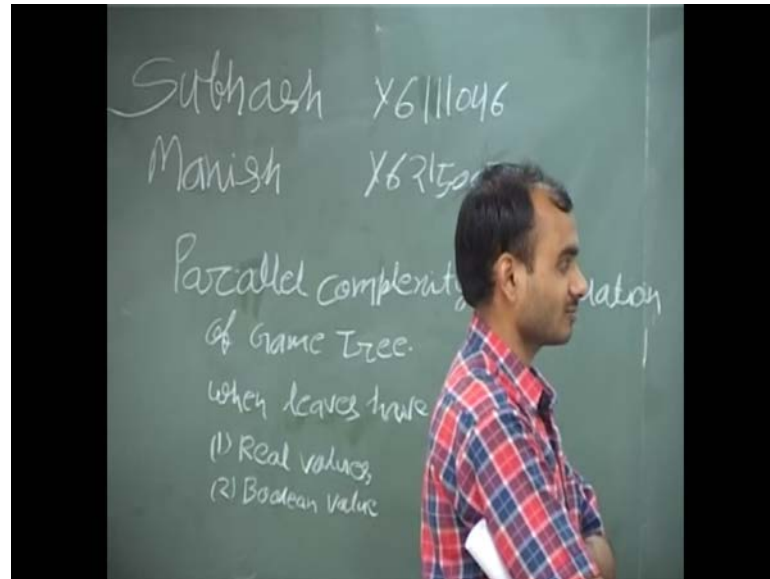 Subhash Y6111046
Manish
Parallel complexity
of Game Tree.
when leaves have
(1) Real values,
(2) Boolean value